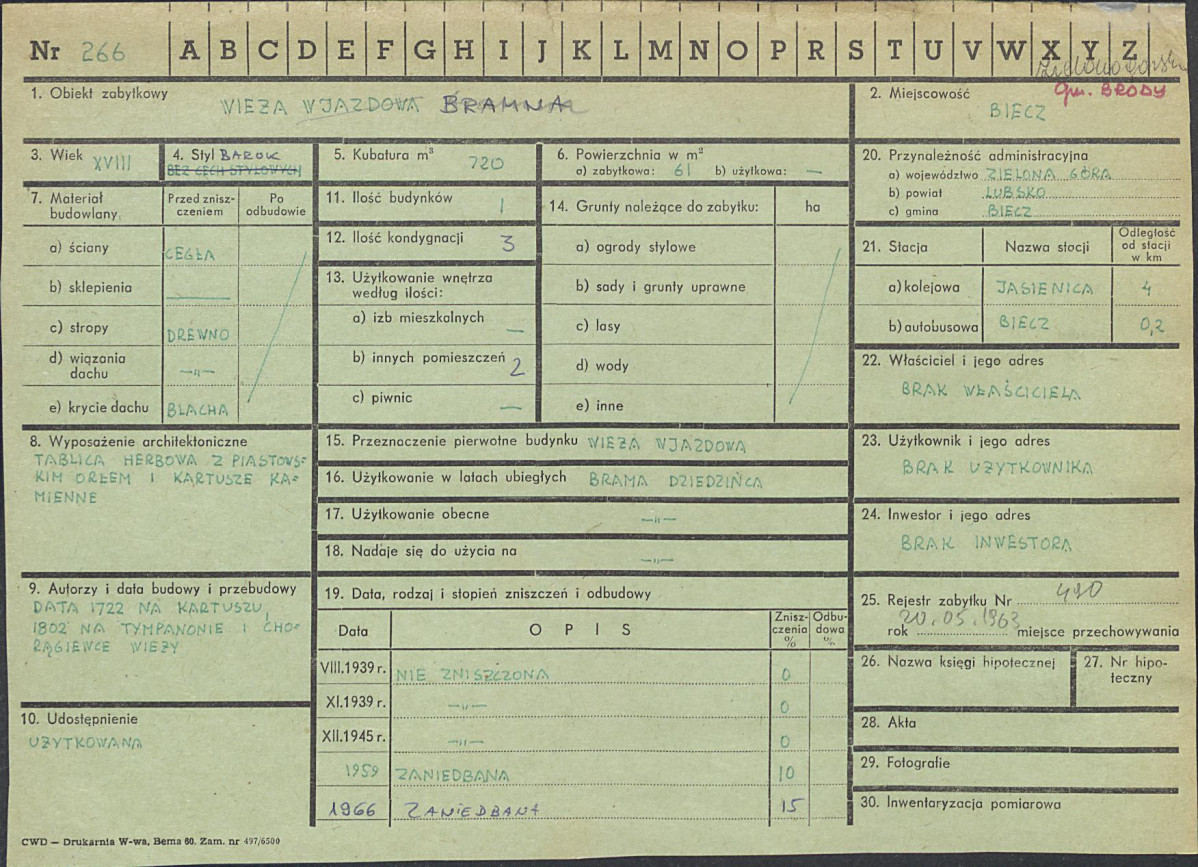 Nr 266 A B C D E F G H I J K L M N O P R S T U V W X Y Z
1. Obiekt zabytkowy
WIEŻA WJAZDOWA BRAMNA
2. Miejscowość
gm. BRODY
BIECZ
3. Wiek XVIII
4. Styl BAROK
BEZ CECH STYLOWYCH
5. Kubatura m³ 720
6. Powierzchnia w m²
a) zabytkowa: 61 b) użytkowa: —
7. Materiał budowlany
Przed zniszczeniem
Po odbudowie
a) ściany CEGŁA
b) sklepienia —
c) stropy DREWNO
d) wiązania dachu —„—
e) krycie dachu BLACHA
8. Wyposażenie architektoniczne
TABLICA HERBOWA Z PIASTOWS=
KIM ORŁEM I KARTUSZE KA=
MIENNE
9. Autorzy i data budowy i przebudowy
DATA 1722 NA KARTUSZU,
1802 NA TYMPANONIE I CHO-
RĄGIEWCE WIEŻY
10. Udostępnienie
UŻYTKOWANA
11. Ilość budynków 1
12. Ilość kondygnacji 3
13. Użytkowanie wnętrza
według ilości:
a) izb mieszkalnych —
b) innych pomieszczeń 2
c) piwnic —
14. Grunty należące do zabytku: ha
a) ogrody stylowe
b) sady i grunty uprawne
c) lasy
d) wody
e) inne
15. Przeznaczenie pierwotne budynku WIEŻA WJAZDOWA
16. Użytkowanie w latach ubiegłych BRAMA DZIEDZIŃCA
17. Użytkowanie obecne —„—
18. Nadaje się do użycia na —„—
19. Data, rodzaj i stopień zniszczeń i odbudowy
Data OPIS Zniszczenia % Odbudowa %
VIII.1939 r. NIE ZNISZCZONA 0
XI.1939 r. —„— 0
XII.1945 r. —„— 0
1959 ZANIEDBANA 10
1966 ZANIEDBANA 15
20. Przynależność administracyjna
a) województwo ZIELONA GÓRA
b) powiat LUBSKO
c) gmina BIECZ
21. Stacja Nazwa stacji Odległość od stacji w km
a) kolejowa JASIENICA 4
b) autobusowa BIECZ 0,2
22. Właściciel i jego adres
BRAK WŁAŚCICIELA
23. Użytkownik i jego adres
BRAK UŻYTKOWNIKA
24. Inwestor i jego adres
BRAK INWESTORA
25. Rejestr zabytku Nr 490
rok 20.05.1963 miejsce przechowywania
26. Nazwa księgi hipotecznej
27. Nr hipoteczny
28. Akta
29. Fotografie
30. Inwentaryzacja pomiarowa
CWD — Drukarnia W-wa, Bema 60. Zam. nr 497/6500